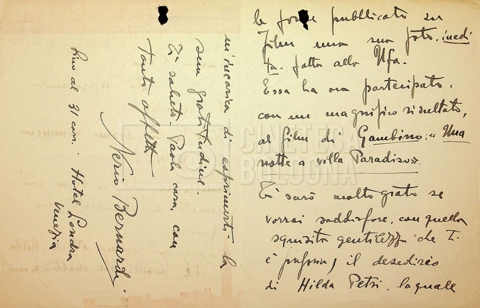 le fosse pubblicata su
Film una sua foto inedi-
ta fatta alla Ufa.
Essa ha ora partecipato,
con un magnifico risultato,
al film di Gambino: "Una
notte a villa Paradiso".
Ti sarò molto grato se
vorrai soddisfare, con quella
squisita gentilezza che Ti
è propria, il desiderio
di Hilda Petri, la quale
m'incarica di esprimerti la
sua gratitudine.
Ti saluto Paola cara, con
tanto affetto
Nerio Bernardi.
fino al 31 corr. Hotel Londra
Venezia
CINETECA
BOLOGNA